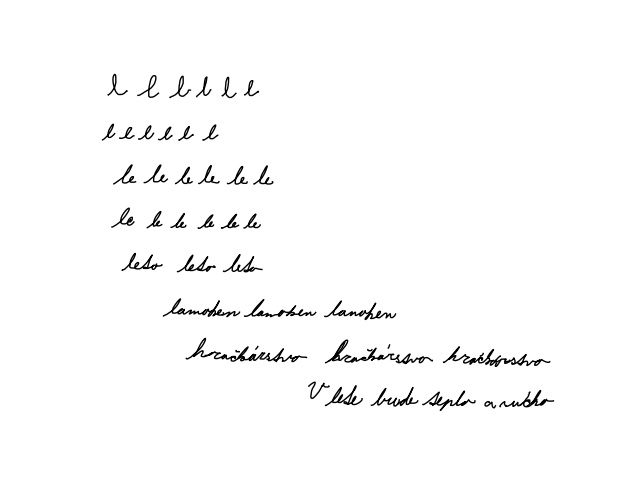 l l l l l l
le le le le le le
le le le le le le
leto leto leto
lamoken lamoken lamoken
hračkárstvo hračkárstvo hračkárstvo
V lete bude teplo a sucho